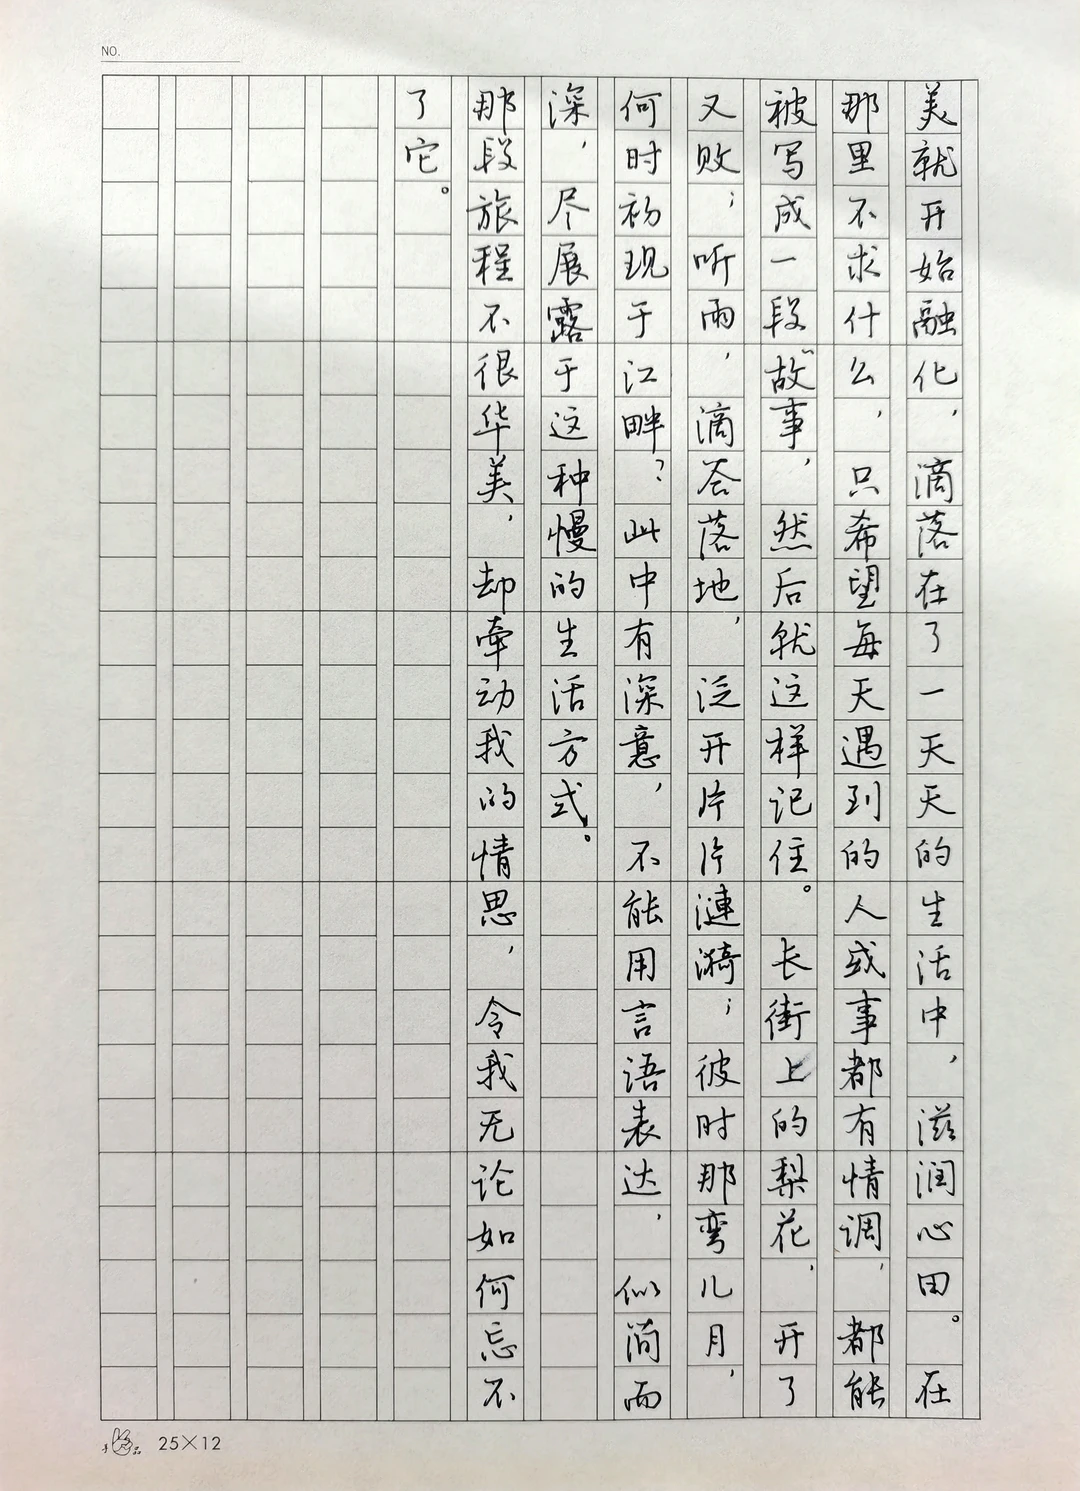 NO.
美就开始融化，滴落在了一天天的生活中，滋润心田。在
那里不求什么，只希望每天遇到的人或事都有情调，都能
被写成一段“故事，然后就这样记住。长街上的梨花，开了
又败；听雨，滴答落地，泛开片片涟漪；彼时那弯儿月，
何时初现于江畔？此中有深意，不能用言语表达，似简而
深，尽展露于这种慢的生活方式。
那段旅程不很华美，却牵动我的情思，令我无论如何忘不
了它。
25×12